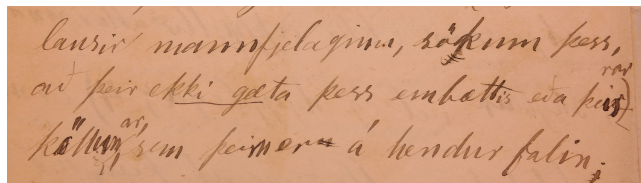 lausir mannfjelaginu, sökum þess,
að þeir ekki gæta þess embættis eða þeir
köllunar, sem þeim er á hendur falin.